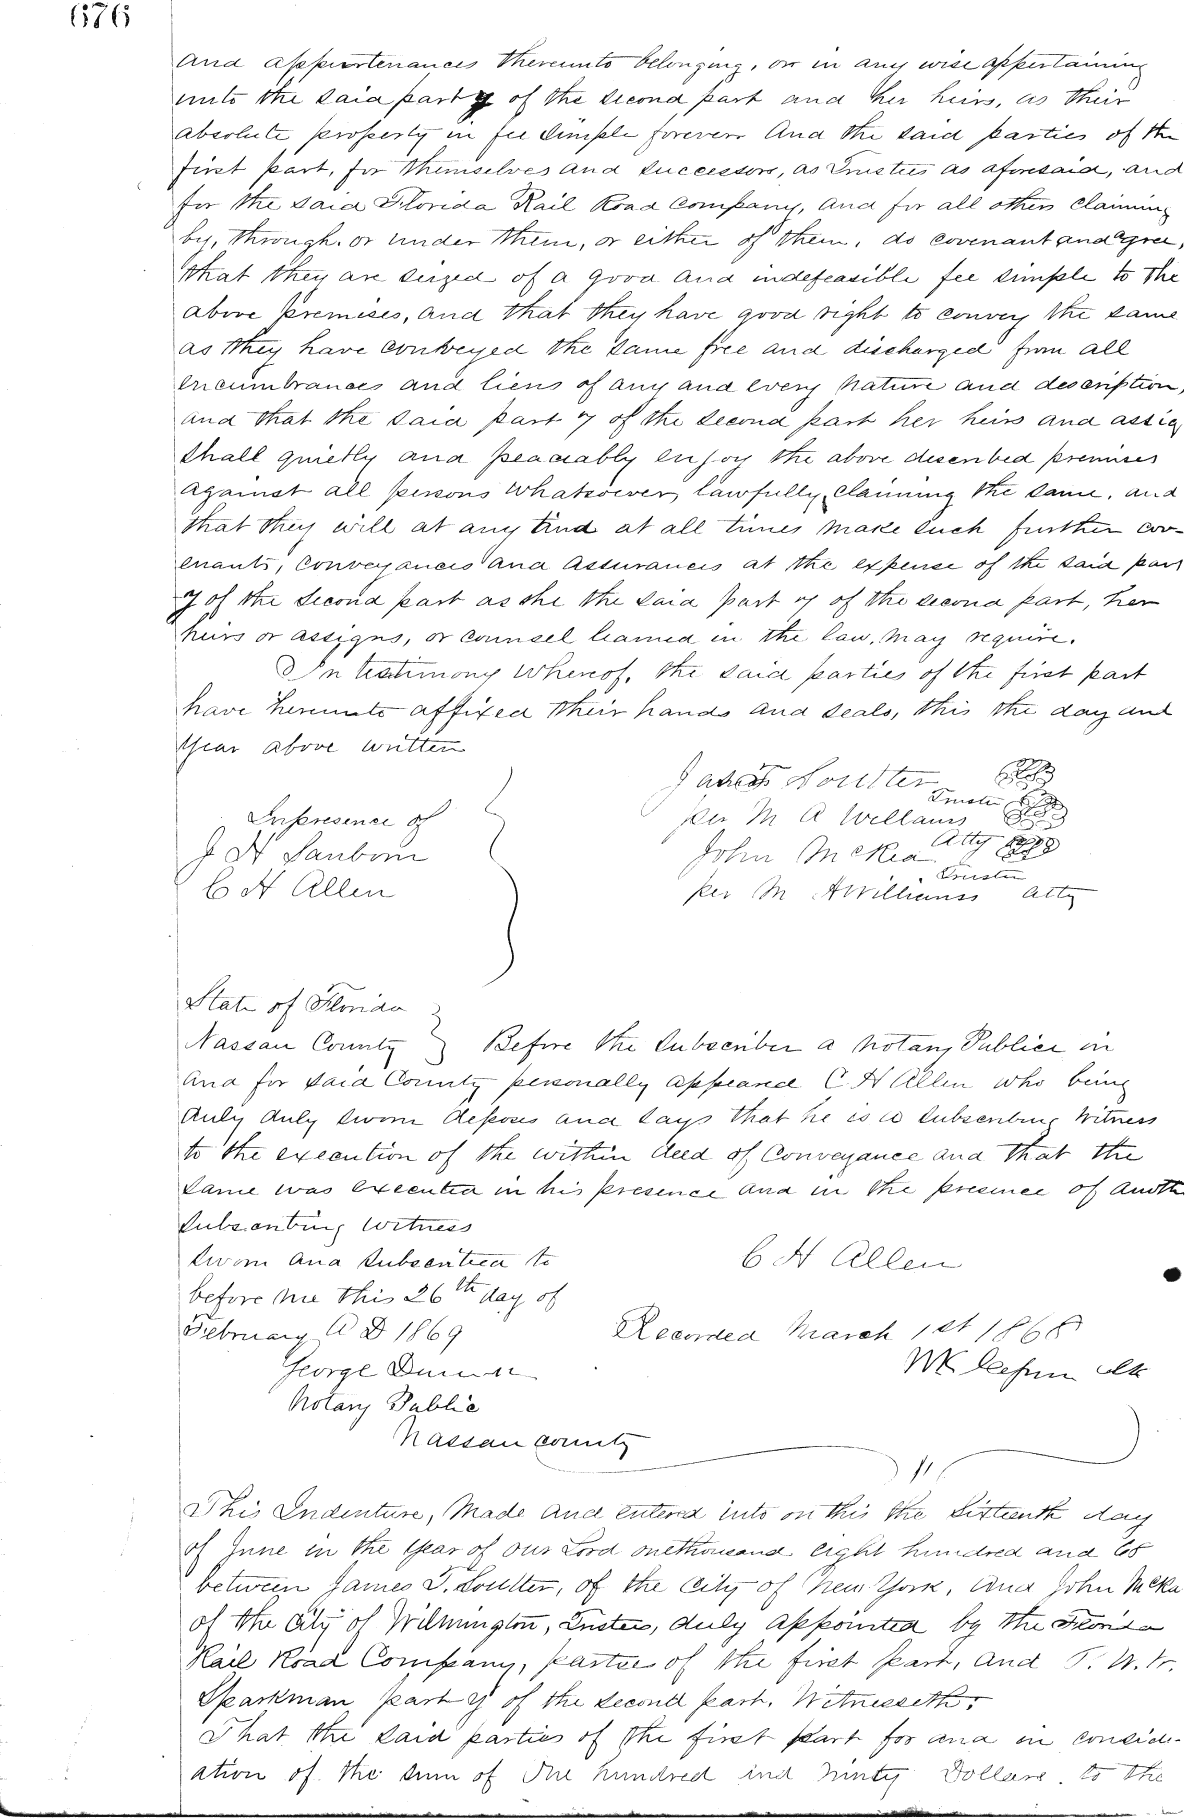 676
and appurtenances thereunto belonging, or in any wise appertaining
unto the said party of the second part and her heirs, as their
absolute property in fee simple forever And the said parties of the
first part, for themselves and successors, as Trustees as aforesaid, and
for the said Florida Rail Road Company, and for all others claiming
by, through, or under them, or either of them, do covenant and agree,
that they are seized of a good and indefeasible fee simple to the
above premises, and that they have good right to convey the same
as they have conveyed the same free and discharged from all
encumbrances and liens of any and every nature and description,
and that the said part y of the second part her heirs and assig
shall quietly and peaceably enjoy the above described premises
against all persons whatsoever, lawfully, claiming the same, and
that they will at any time at all times make such further cov-
enants, conveyances and assurances at the expense of the said part
y of the second part as she the said part y of the second part, her
heirs or assigns, or counsel learned in the law, may require.
In testimony whereof, the said parties of the first part
have hereunto affixed their hands and seals, this the day and
year above written
James T Soutter
Trustee
In presence of
per M A Williams
Atty
J H Sanborn
John McRea
Trustee
C H Allen
per M A Williams Atty
State of Florida
Nassau County } Before the Subscriber a Notary Public in
and for said County personally appeared C H Allen who being
duly duly sworn deposes and says that he is a subscribing witness
to the execution of the within deed of Conveyance and that the
same was executed in his presence and in the presence of anoth
subscribing witness
Sworn and subscribed to
C H Allen
before me this 26th day of
February A D 1869
Recorded March 1st 1868
George
Notary Public
Nassau county
This Indenture, Made and entered into on this the Sixteenth day
of June in the year of our Lord one thousand eight hundred and 68
between James T. Soutter, of the City of New York, and John McRea
of the City of Wilmington, Trustees, duly appointed by the Florida
Rail Road Company, parties of the first part, and
Sparkman part y of the second part. Witnesseth:
That the said parties of the first part for and in conside-
ation of the sum of One hundred and ninty Dollars. to the